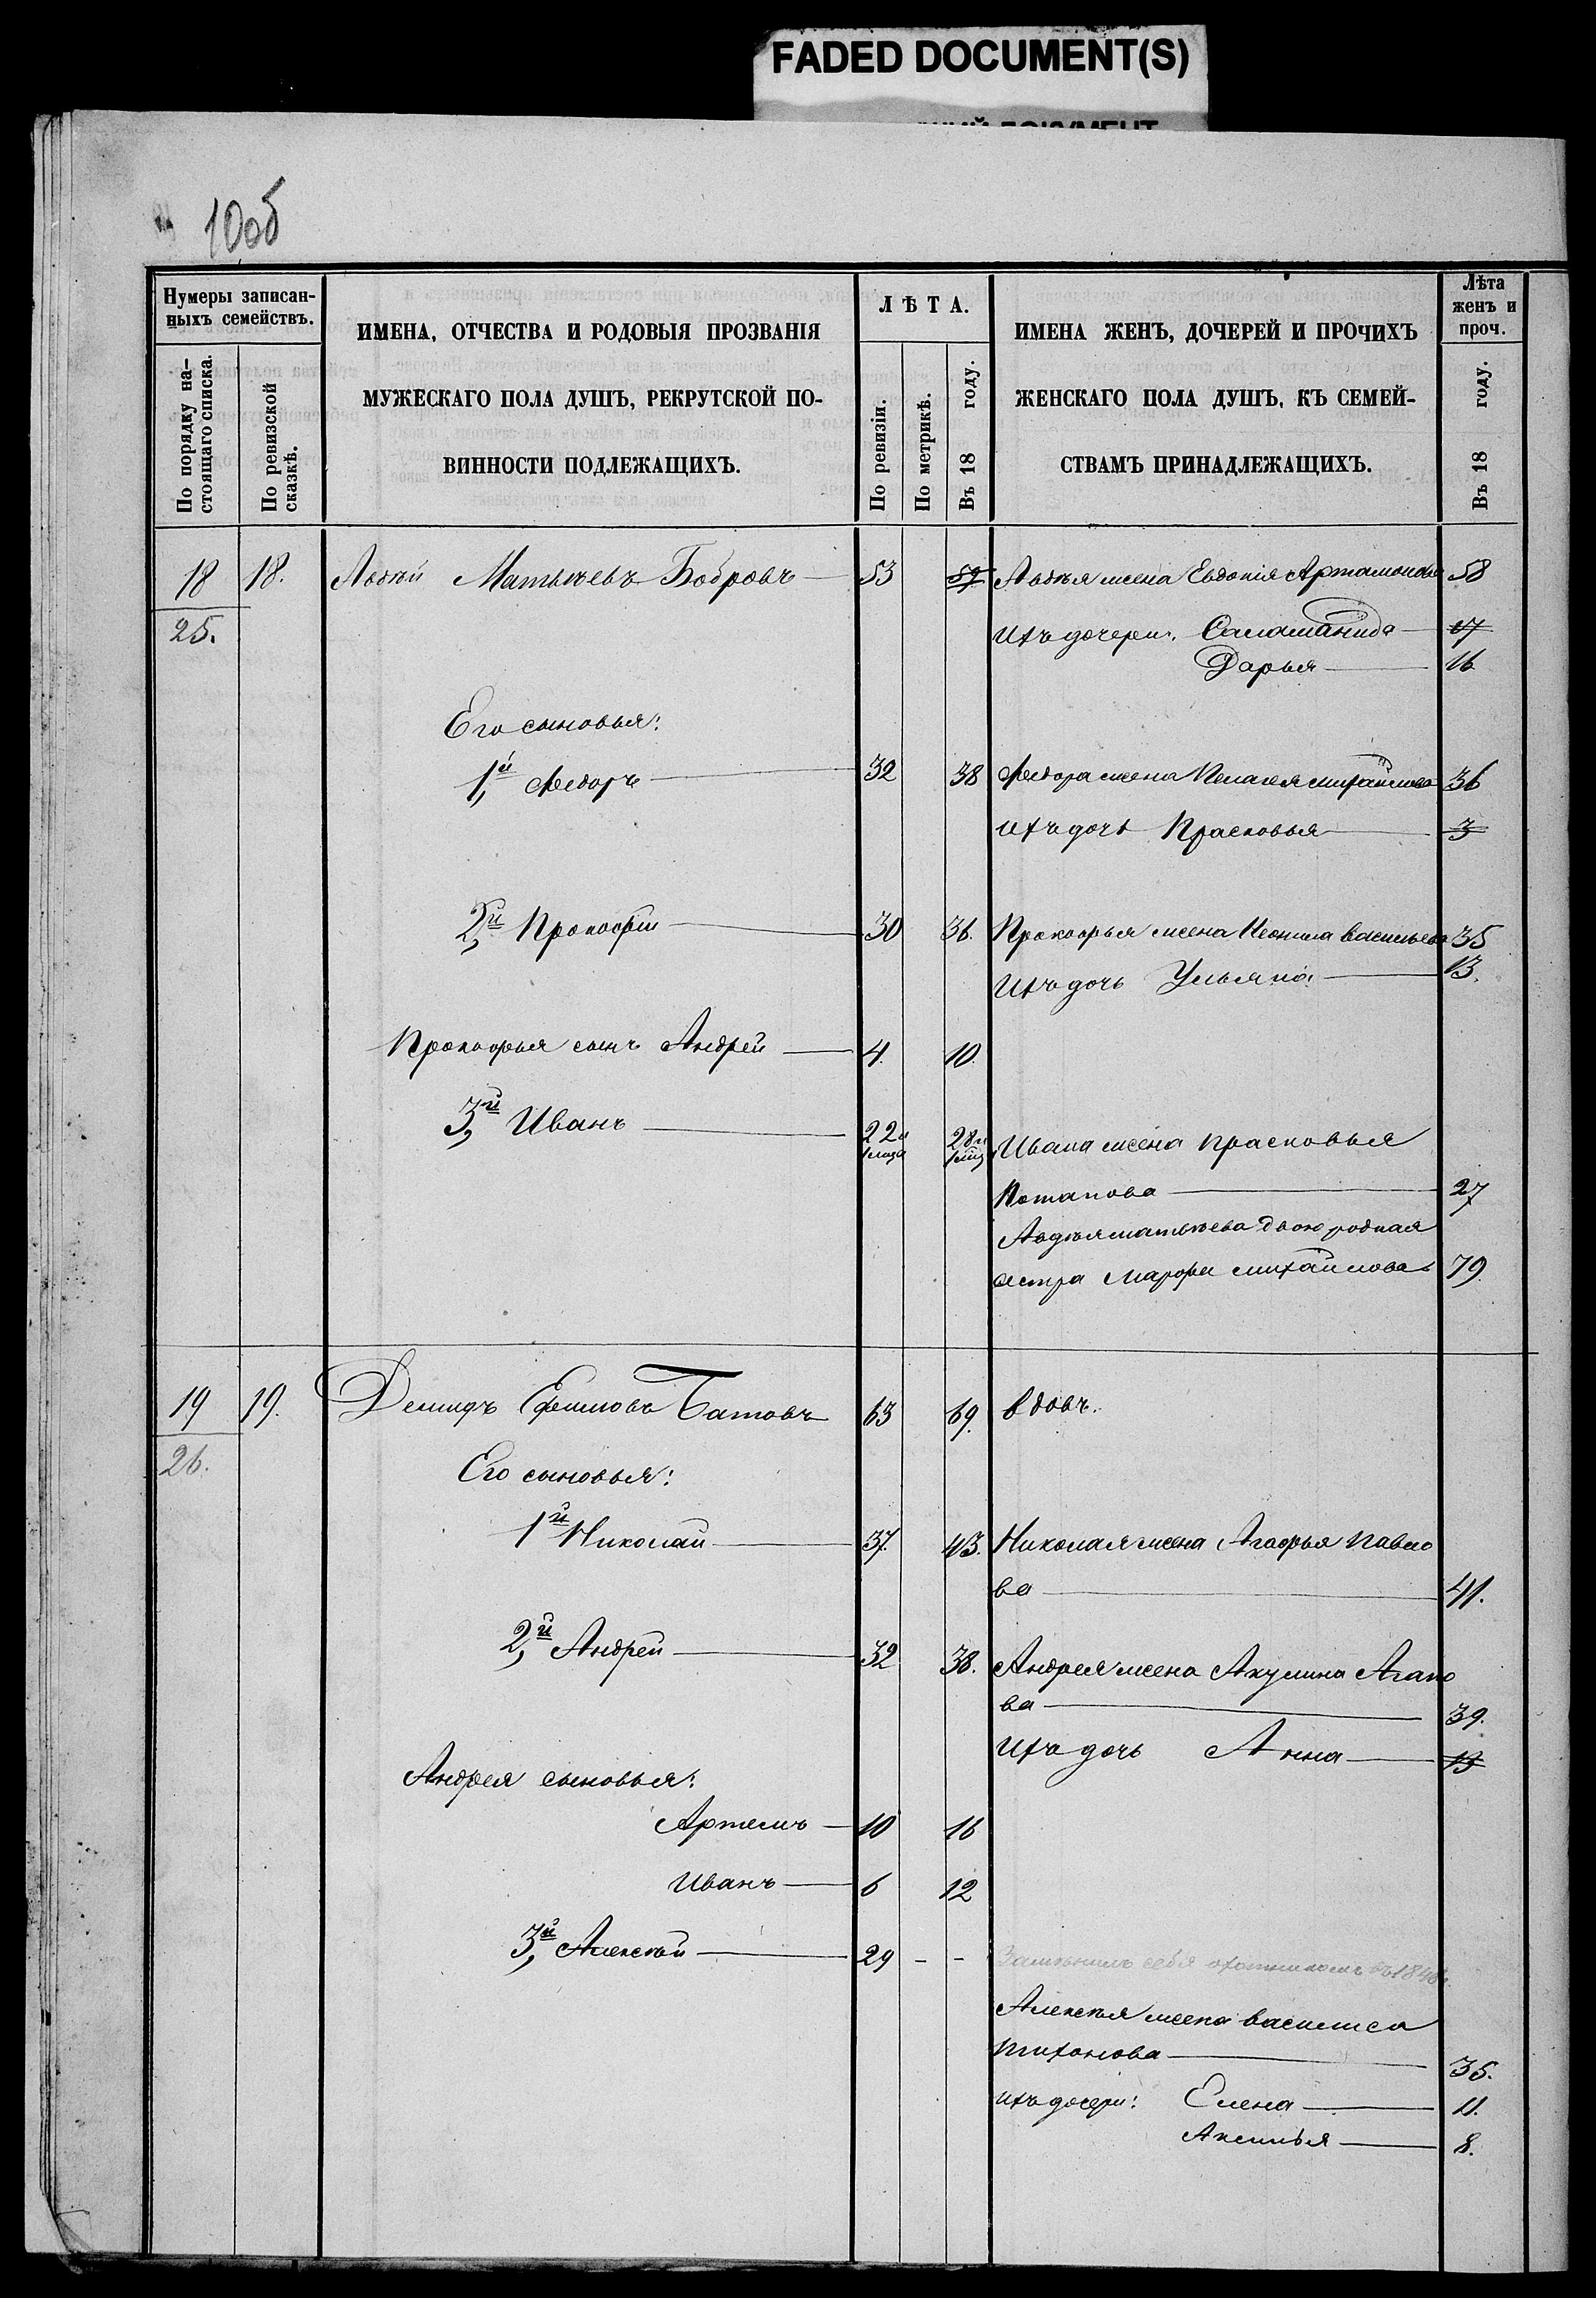 FADED DOCUMENT(S)
10об
Нумеры записан-
ныхъ семействъ.
По порядку на-
стоящаго списка.
По ревизской
сказкѣ.
ИМЕНА, ОТЧЕСТВА И РОДОВЫЯ ПРОЗВАНІЯ
МУЖЕСКАГО ПОЛА ДУШЪ, РЕКРУТСКОЙ ПО-
ВИННОСТИ ПОДЛЕЖАЩИХЪ.
ЛѢТА.
По ревизіи.
По метрикѣ.
Въ 18 году.
ИМЕНА ЖЕНЪ, ДОЧЕРЕЙ И ПРОЧИХЪ
ЖЕНСКАГО ПОЛА ДУШЪ, КЪ СЕМЕЙ-
СТВАМЪ ПРИНАДЛЕЖАЩИХЪ.
Лѣта
женъ и
проч.
Въ 18 году.
18 18. Авдѣй Матвѣевъ Бобровъ 53 59 Авдѣя жена Евдокія Артамонова 58
25.
Ихъ дочери: Саламанида 17
Дарья 16
Его сыновья:
1й Ѳедоръ 32 38 Ѳедора жена Пелагея Михайлова 36
Ихъ дочь Прасковья 3
2й Прокофій 30 36. Прокофья жена Неонила Васильева 35
Ихъ дочь Ульяна 13.
Прокофья сынъ Андрей 4. 10.
3й Иванъ 22 и 28 и Ивана жена Прасковья
Потапова 27
Авдѣя Матвѣева двоюродная
сестра Марфа Михайлова 79.
19 19. Демидъ Ефимовъ Батовъ 63 69. вдовъ.
26.
Его сыновья:
1й Николай 37. 43. Николая жена Агафья Павло
ва 41.
2й Андрей 32 38. Андрея жена Акулина Агапо
ва 39.
Ихъ дочь Анна 13
Андрея сыновья:
Артемъ 10 16
Иванъ 6 12
3й Алексѣй 29 - - Замѣнилъ себя охотникомъ въ
Алексѣя жена Василиса
Тихонова 35.
Ихъ дочери: Елена 11.
Аксинья 8.